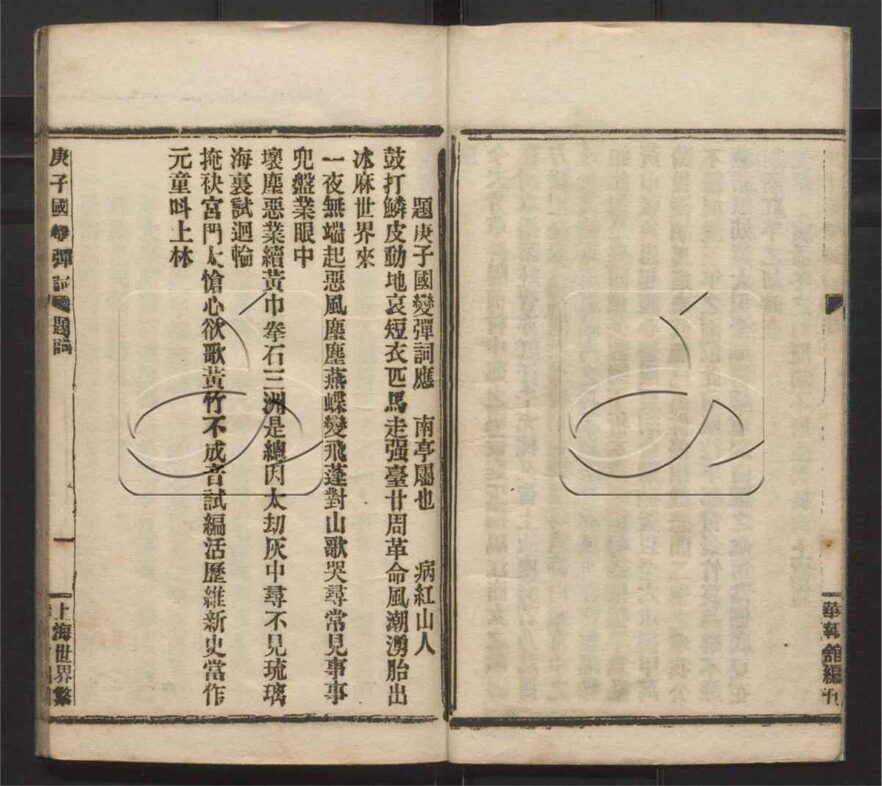 華報館編刊
題庚子國變彈詞應 南亭屬也 病紅山人
鼓打鱗皮動地哀短衣匹馬走强臺廿周革命風潮湧胎出
冰麻世界來
一夜無端起惡風塵塵燕蝶變飛蓬對山歌哭尋常見事事
兜盤業眼中
壞塵惡業續黃巾拳石三洲是總因太刧灰中尋不見琉璃
海裏試迴輪
掩袂宮門太愴心欲歌黃竹不成音試編活歷維新史當作
元童呌上林
庚子國變彈詞 題詞 一 上海世界繁